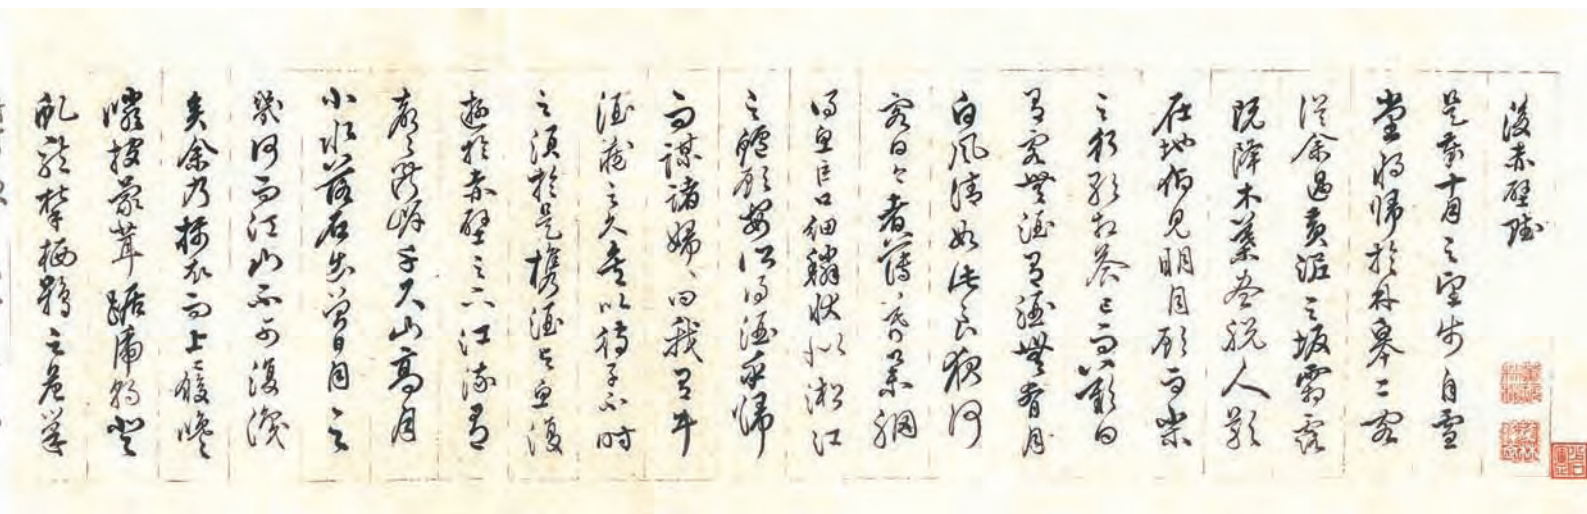 後赤壁賦
是歲十月之望步自雪
堂將歸於臨皋二客
從余過黃泥之坂霜露
既降木葉盡脫人影
在地仰見明月顧而樂
之行歌相答已而歎曰
有客無酒有酒無肴月
白風清如此良夜何
客曰今者薄暮舉網
得魚巨口細鱗狀似淞江
之鱸顧安所得酒乎歸
而謀諸婦、曰我有斗
酒藏之久矣以待子不時
之須於是攜酒與魚復
遊於赤壁之下江流有
聲斷岸千尺山高月
小水落石出曾日月之
幾何而江山不可復識
矣余乃攝衣而上履巉
巖披蒙茸踞虎豹登
虬龍攀栖鶻之危巢